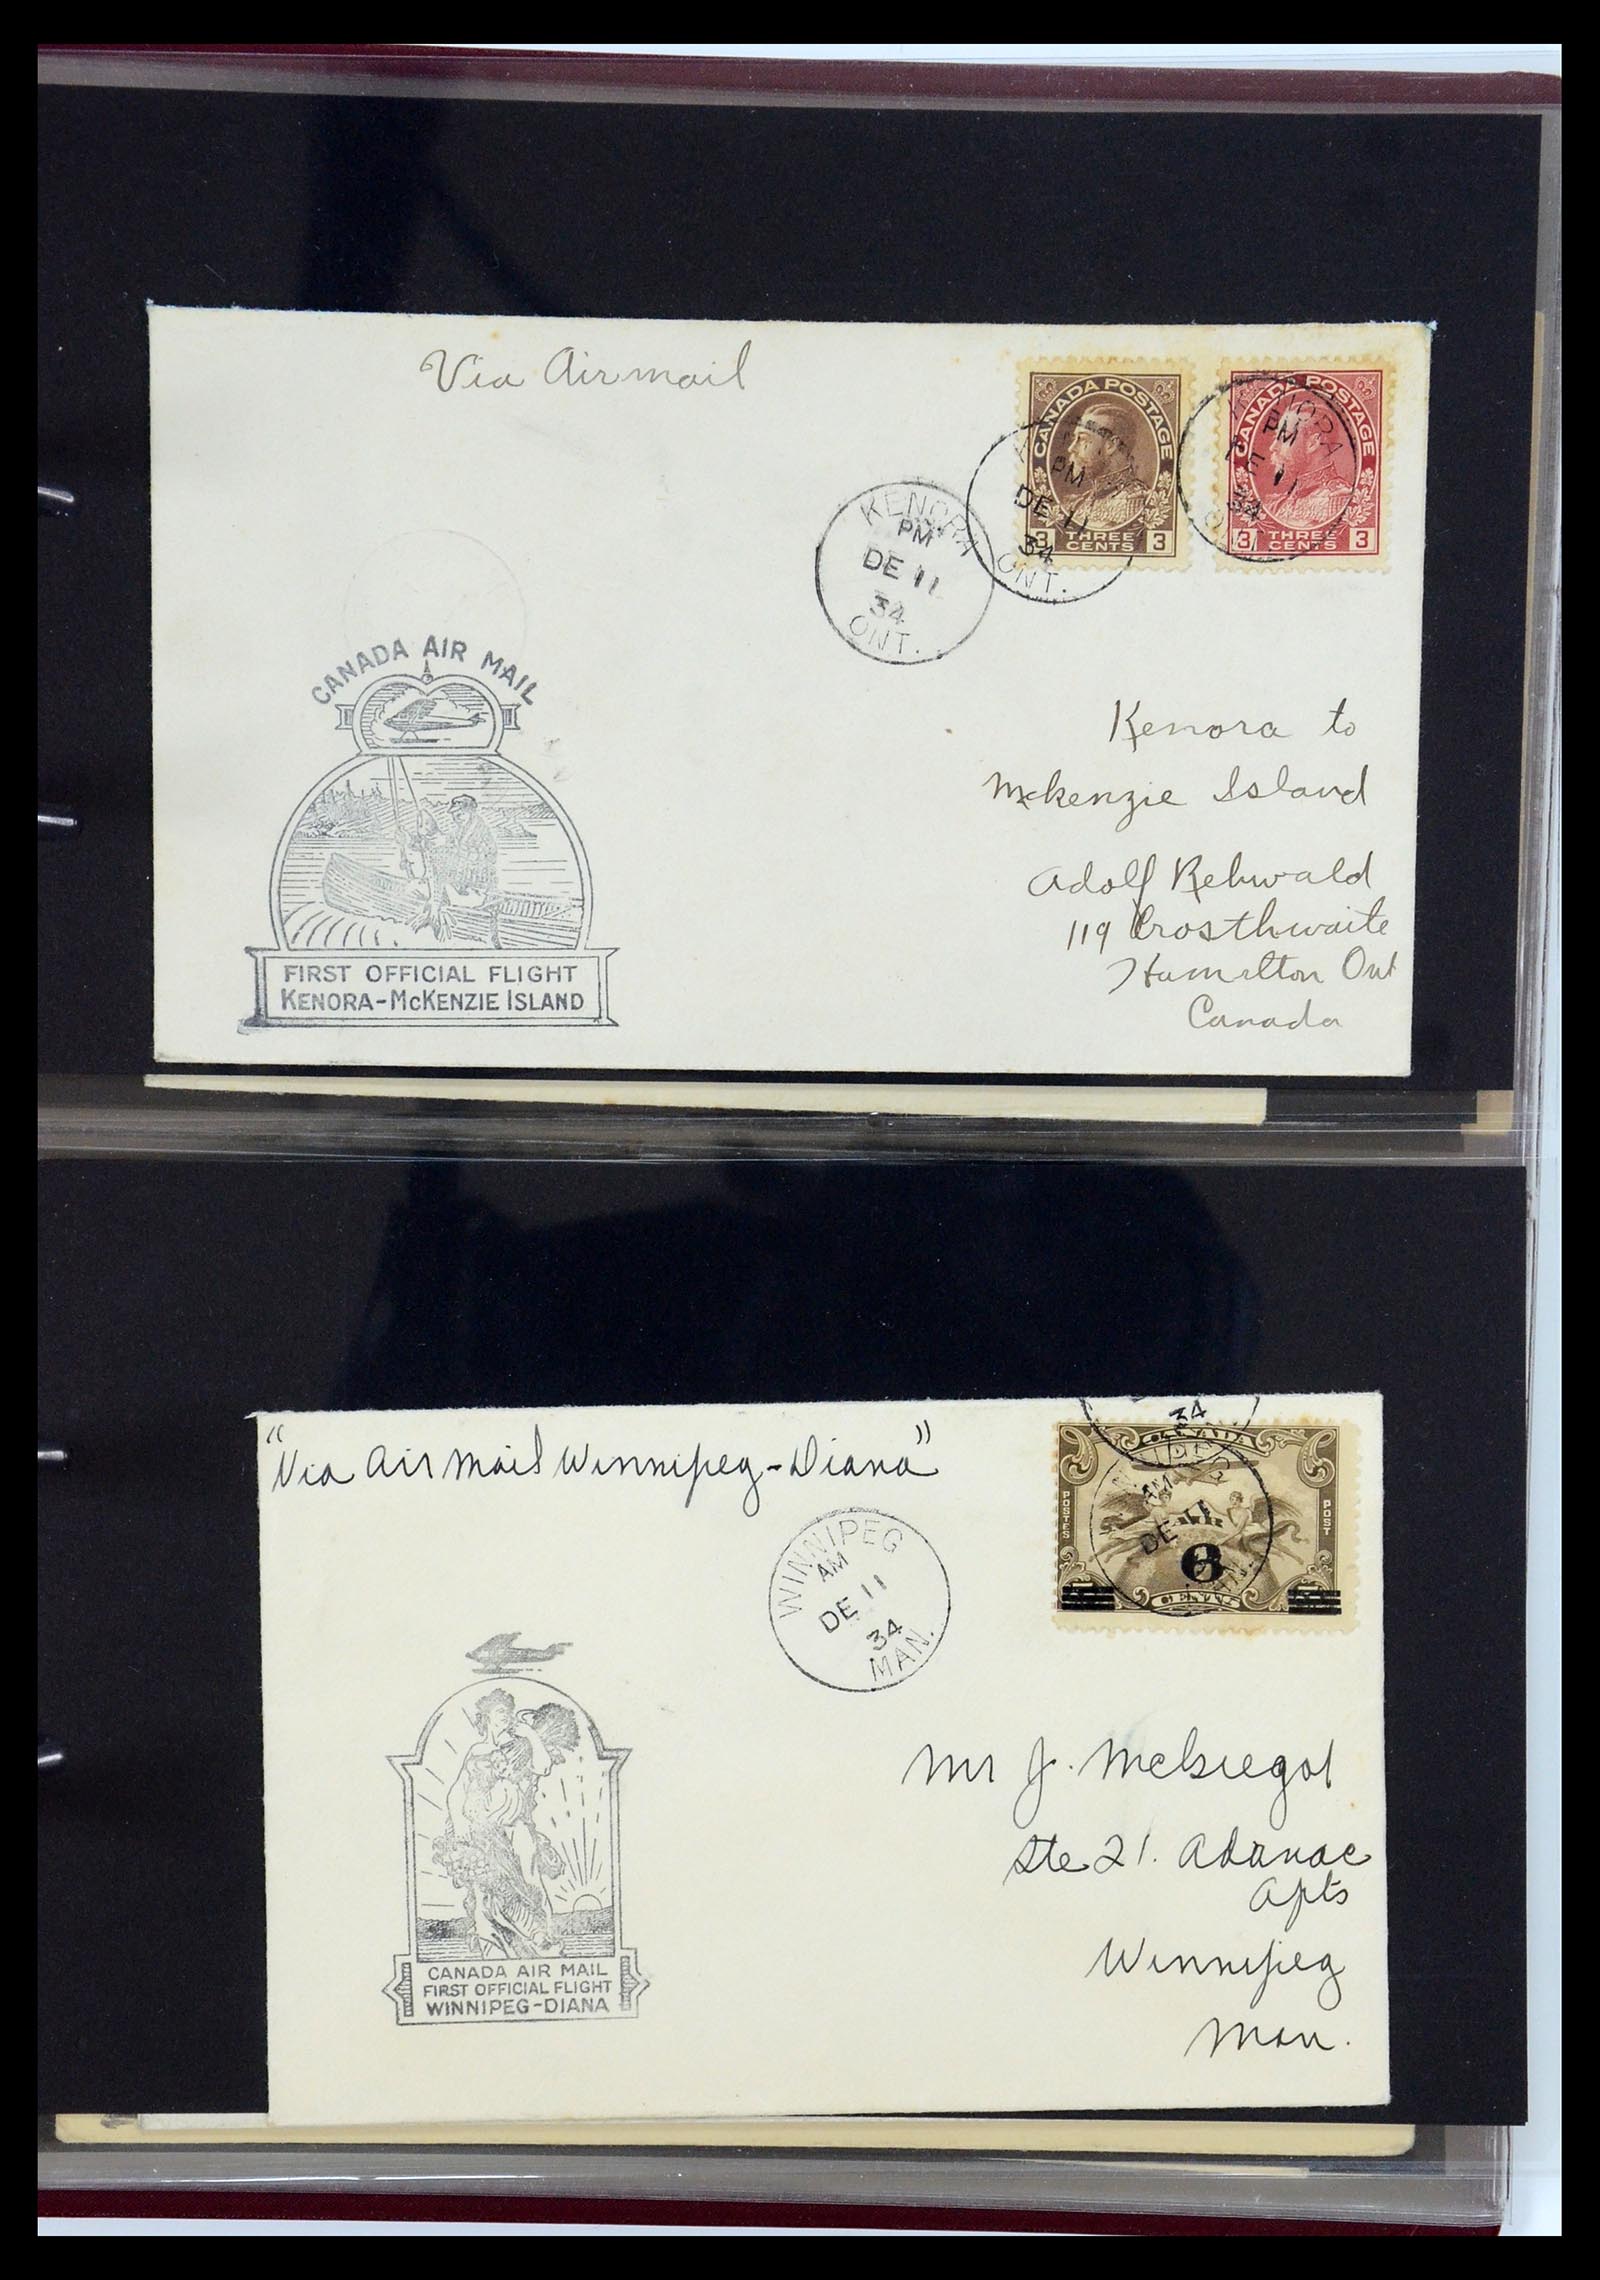 Via Airmail
CANADA POSTAGE
3 THREE CENTS 3
CANADA POSTAGE
3 THREE CENTS 3
KENORA
PM
DE 11
34
ONT.
PM
DE 11
34
ONT.
KENORA
PM
DE 11
34
CANADA AIR MAIL
FIRST OFFICIAL FLIGHT
KENORA-McKENZIE ISLAND
Kenora to
McKenzie Island
Adolf Rehwald
119 Crosthwaite
Hamilton Ont
Canada
"Via Air Mail Winnipeg-Diana"
34
CANADA
POSTES
POST
AM
DE 11
6
CENTS
WINNIPEG
AM
DE 11
34
MAN.
CANADA AIR MAIL
FIRST OFFICIAL FLIGHT
WINNIPEG-DIANA
Mr J. McGregor
Ste 21. Adanac
Apts
Winnipeg
Man.